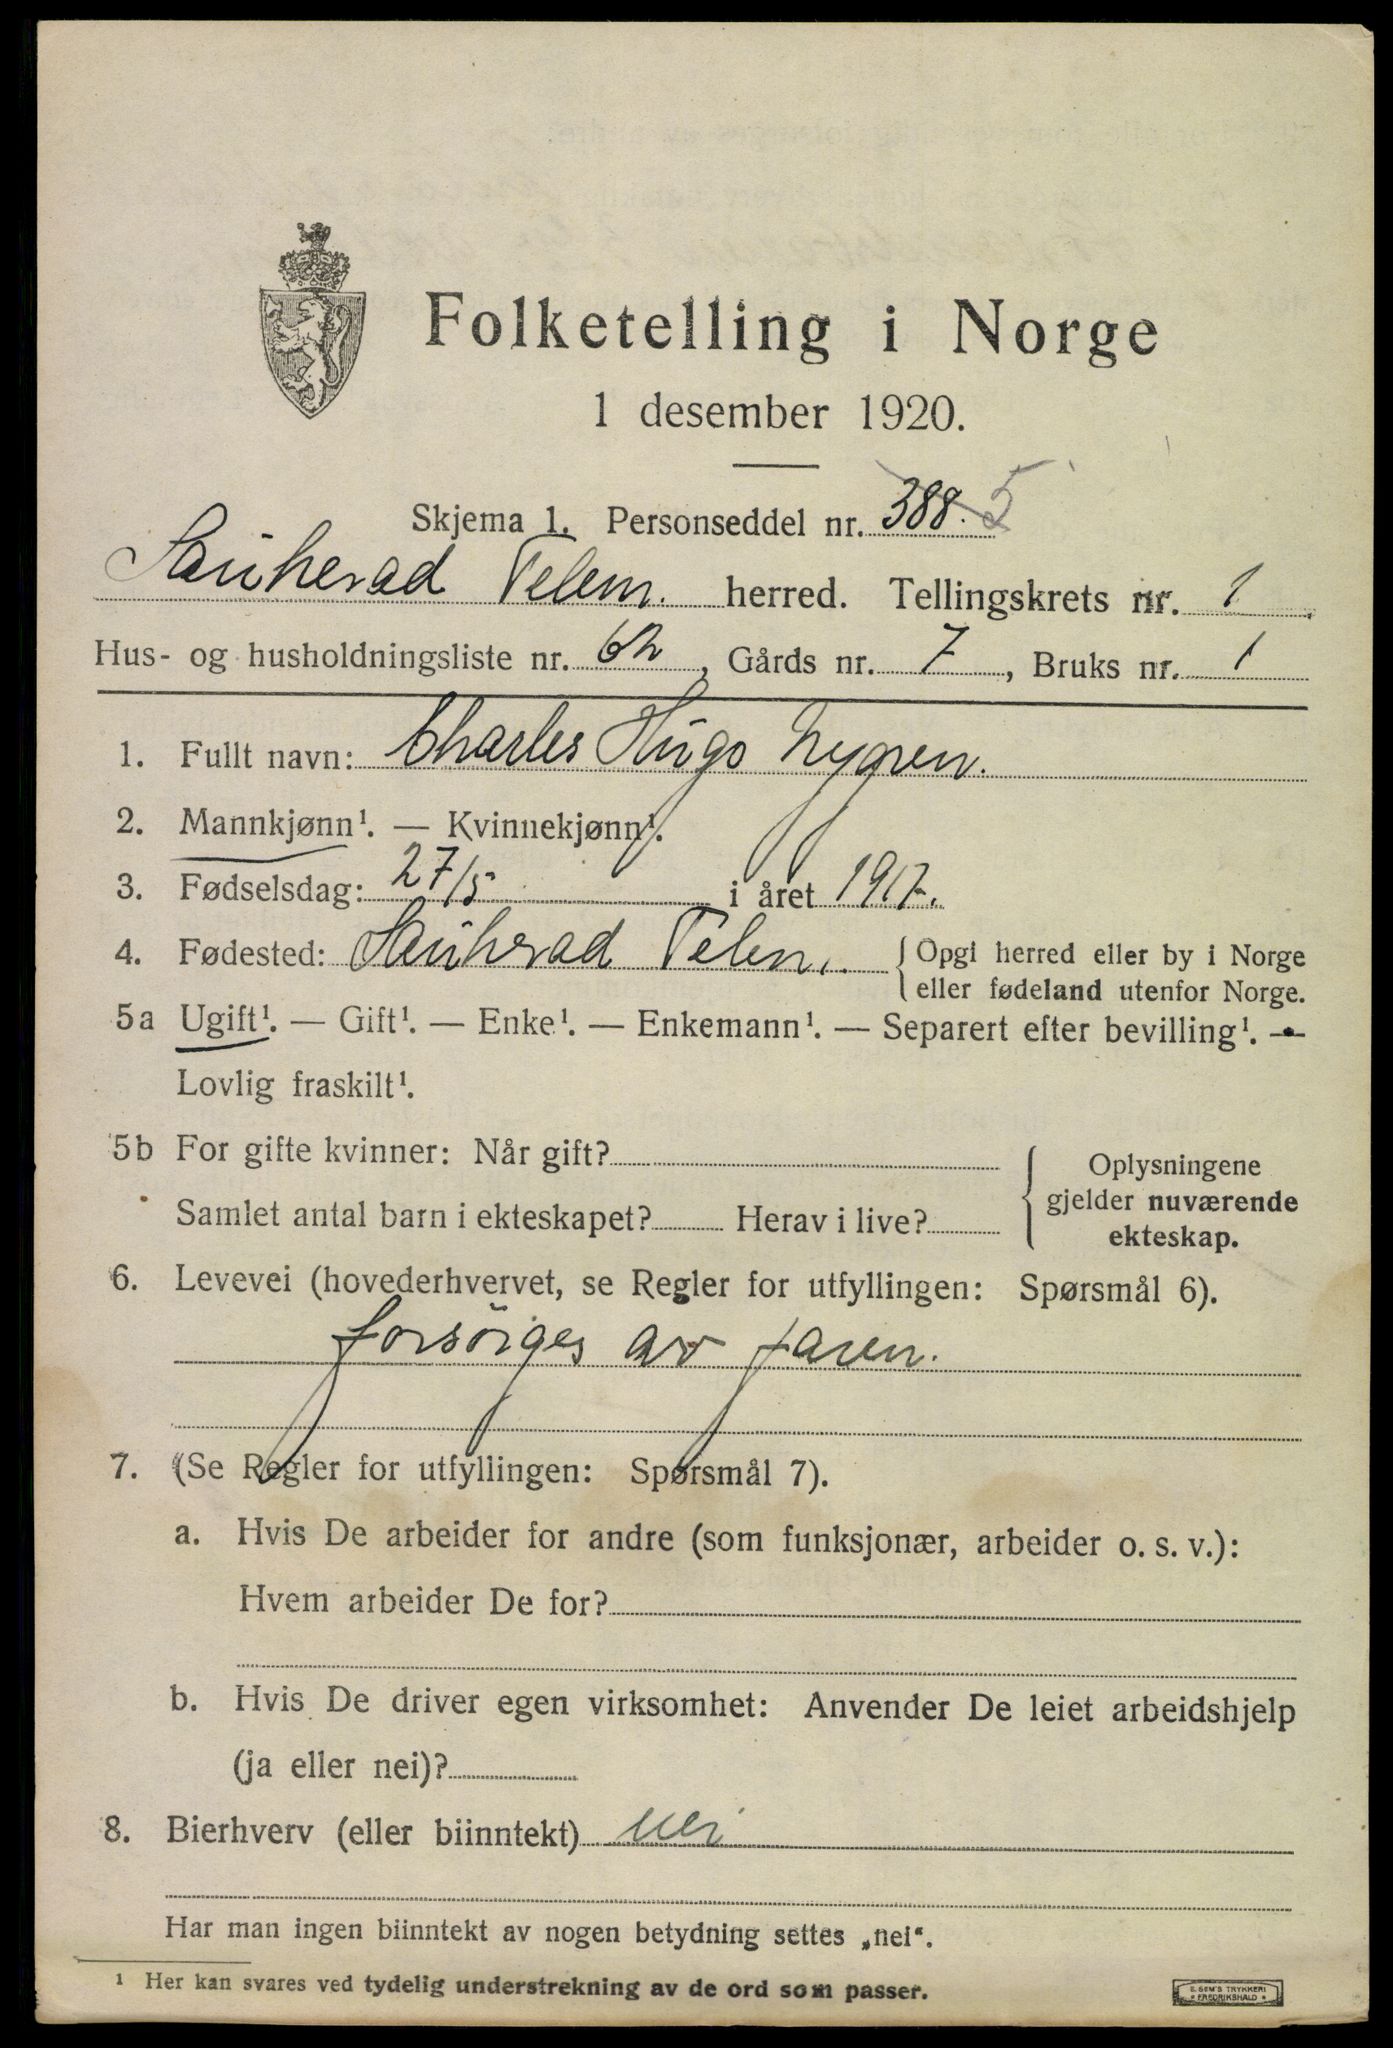 Folketelling i Norge
1 desember 1920.
Skjema 1. Personseddel nr. 388. 5
Sauherad Telem. herred. Tellingskrets nr. 1
Hus- og husholdningsliste nr. 62, Gårds nr. 7, Bruks nr. 1
1. Fullt navn: Charles Hugo Nygren.
2. Mannkjønn¹. — Kvinnekjønn¹.
3. Fødselsdag: 27/5 i året 1917.
4. Fødested: Sauherad Telem. { Opgi herred eller by i Norge
eller fødeland utenfor Norge.
5a Ugift¹. — Gift¹. — Enke¹. — Enkemann¹. — Separert efter bevilling¹. —
Lovlig fraskilt¹.
5b For gifte kvinner: Når gift?
Samlet antal barn i ekteskapet? Herav i live?
{ Oplysningene
gjelder nuværende
ekteskap.
6. Levevei (hovederhvervet, se Regler for utfyllingen: Spørsmål 6).
forsörges av faren.
7. (Se Regler for utfyllingen: Spørsmål 7).
a. Hvis De arbeider for andre (som funksjonær, arbeider o. s. v.):
Hvem arbeider De for?
b. Hvis De driver egen virksomhet: Anvender De leiet arbeidshjelp
(ja eller nei)?
8. Bierhverv (eller biinntekt) nei
Har man ingen biinntekt av nogen betydning settes „nei“.
¹ Her kan svares ved tydelig understrekning av de ord som passer.
E. SEM'S TRYKKERI
* FREDRIKSHALD *